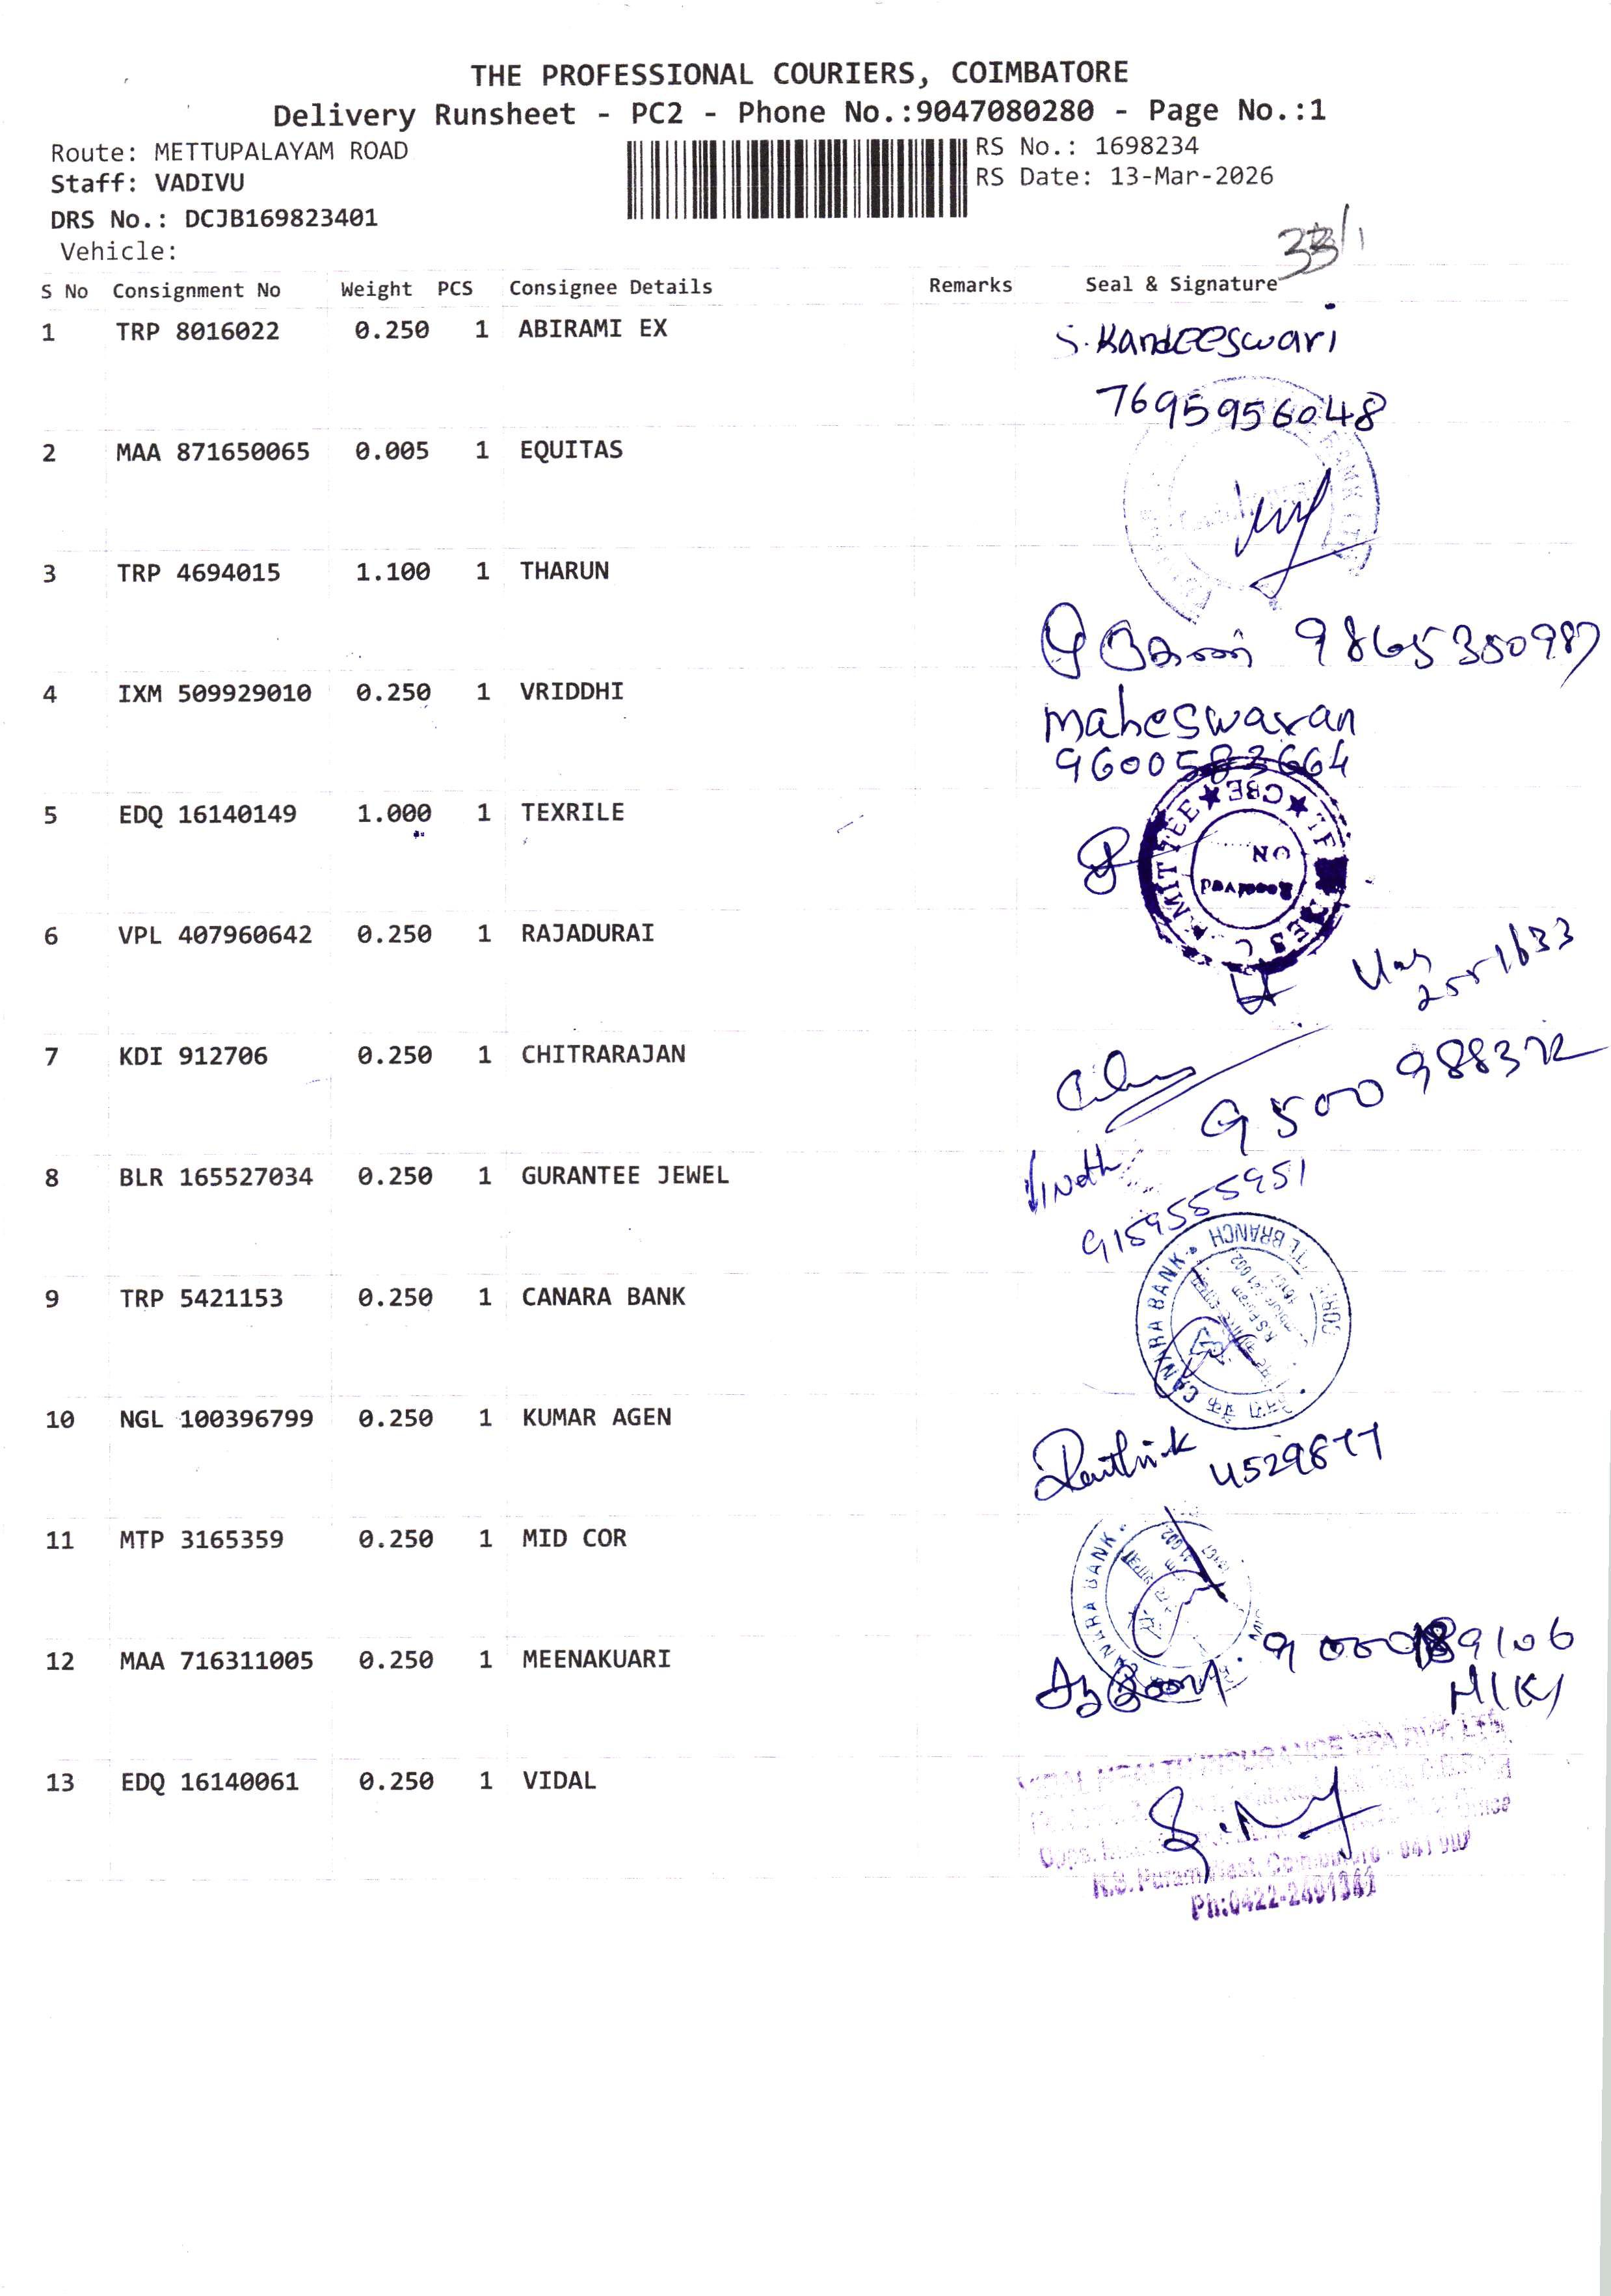 THE PROFESSIONAL COURIERS, COIMBATORE
Delivery Runsheet - PC2 - Phone No.:9047080280 - Page No.:1
Route: METTUPALAYAM ROAD
RS No.: 1698234
Staff: VADIVU
RS Date: 13-Mar-2026
DRS No.: DCJB169823401
Vehicle:
S No Consignment No Weight PCS Consignee Details Remarks Seal & Signature
1 TRP 8016022 0.250 1 ABIRAMI EX
S. Kandeeswari
7695956048
2 MAA 871650065 0.005 1 EQUITAS
3 TRP 4694015 1.100 1 THARUN
9865350987
4 IXM 509929010 0.250 1 VRIDDHI
maheswaran
9600583664
5 EDQ 16140149 1.000 1 TEXRILE
CBE
Received
ON
6 VPL 407960642 0.250 1 RAJADURAI
2551633
7 KDI 912706 0.250 1 CHITRARAJAN
8 BLR 165527034 0.250 1 GURANTEE JEWEL
Vinoth
9159555951
9 TRP 5421153 0.250 1 CANARA BANK
CANARA BANK
BRANCH
10 NGL 100396799 0.250 1 KUMAR AGEN
4529877
11 MTP 3165359 0.250 1 MID COR
BANK
12 MAA 716311005 0.250 1 MEENAKUARI
13 EDQ 16140061 0.250 1 VIDAL
R.S. Puram West, Coimbatore - 641 002
Ph:0422-2491341